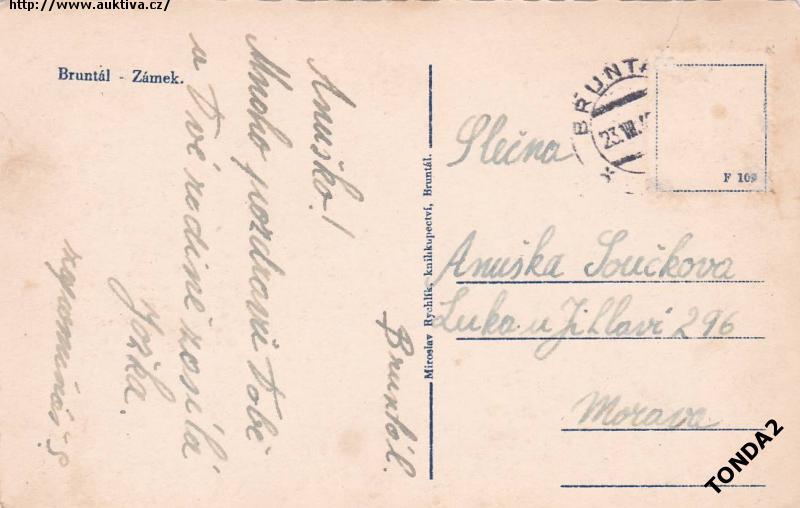 http://www.auktiva.cz/
Bruntál - Zámek.
Anuško!
Mnoho pozdravů Tobě
a Tvé rodině zasílá
Jožka.
vzpomínáš?
Bruntál.
Miroslav Rychlík, knihkupectví, Bruntál.
BRUNTÁ
23.VIII.
F 109
Slečna
Anuška Součkova
Luka u Jihlavi 296
Morava
TONDA2